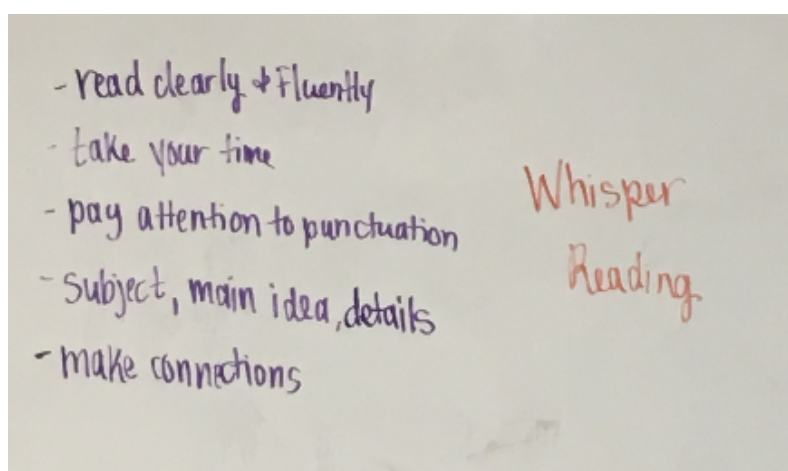 - read clearly & Fluently
- take your time
- pay attention to punctuation
- subject, main idea, details
- make connections
Whisper
Reading